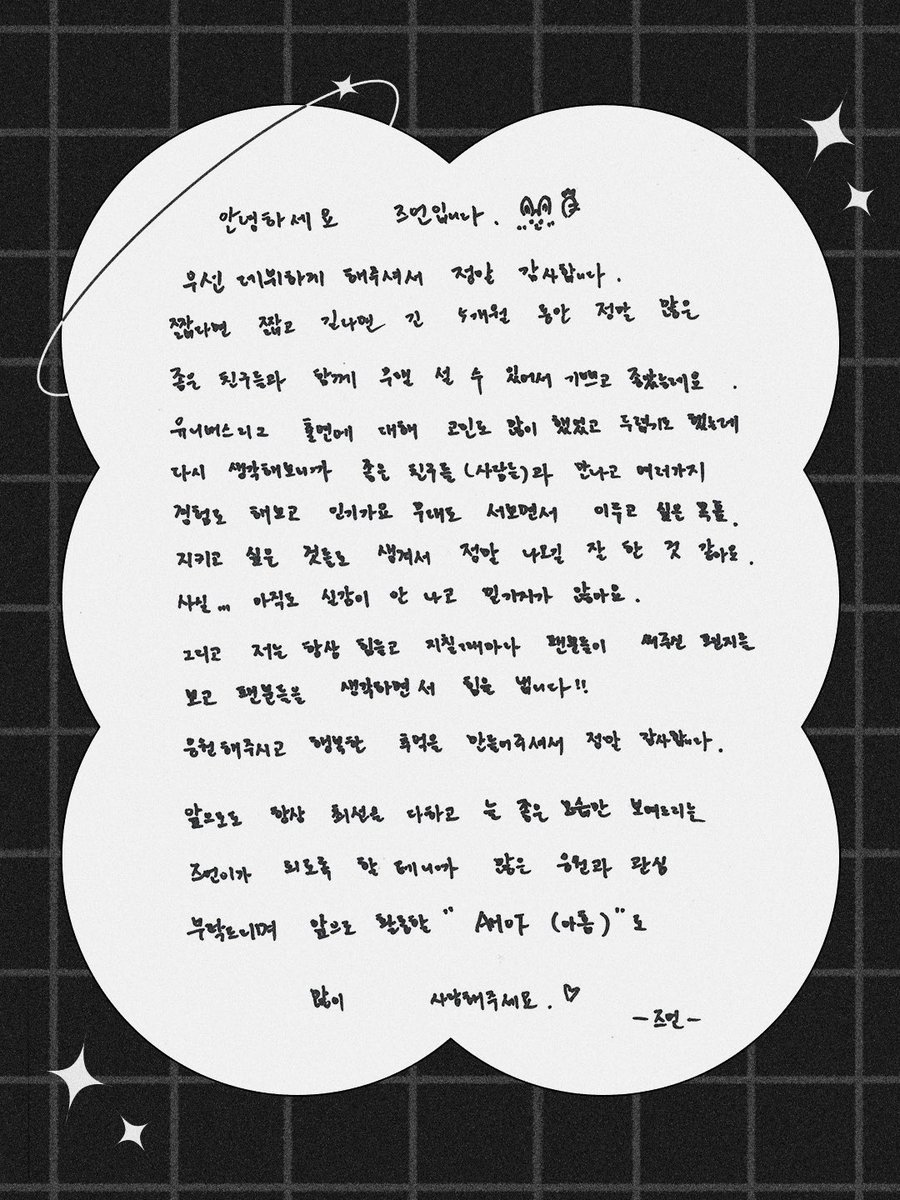 안녕하세요 즈언입니다.
우선 데뷔하게 해주셔서 정말 감사합니다.
짧다면 짧고 길다면 긴 5개월 동안 정말 많은
좋은 친구들과 함께 무대 설 수 있어서 기쁘고 좋았는데요.
유니버스리그 출연에 대해 고민도 많이 했었고 두렵기도 했는데
다시 생각해보니까 좋은 친구들(사람들)과 만나고 여러가지
경험도 해보고 인기가요 무대도 서보면서 이루고 싶은 목표,
지키고 싶은 것들도 생겨서 정말 나오길 잘 한 것 같아요.
사실... 아직도 실감이 안 나고 믿기지가 않아요.
그리고 저는 항상 힘들고 지칠때마다 팬분들이 써주신 편지를
보고 팬분들을 생각하면서 힘을 냅니다!!
응원해주시고 행복한 추억을 만들어주셔서 정말 감사합니다.
앞으로도 항상 최선을 다하고 늘 좋은 모습만 보여드리는
즈언이가 되도록 할 테니까 많은 응원과 관심
부탁드리며 앞으로 활동할 " AHOF (아홉)"도
많이 사랑해주세요. ♡
- 즈언 -